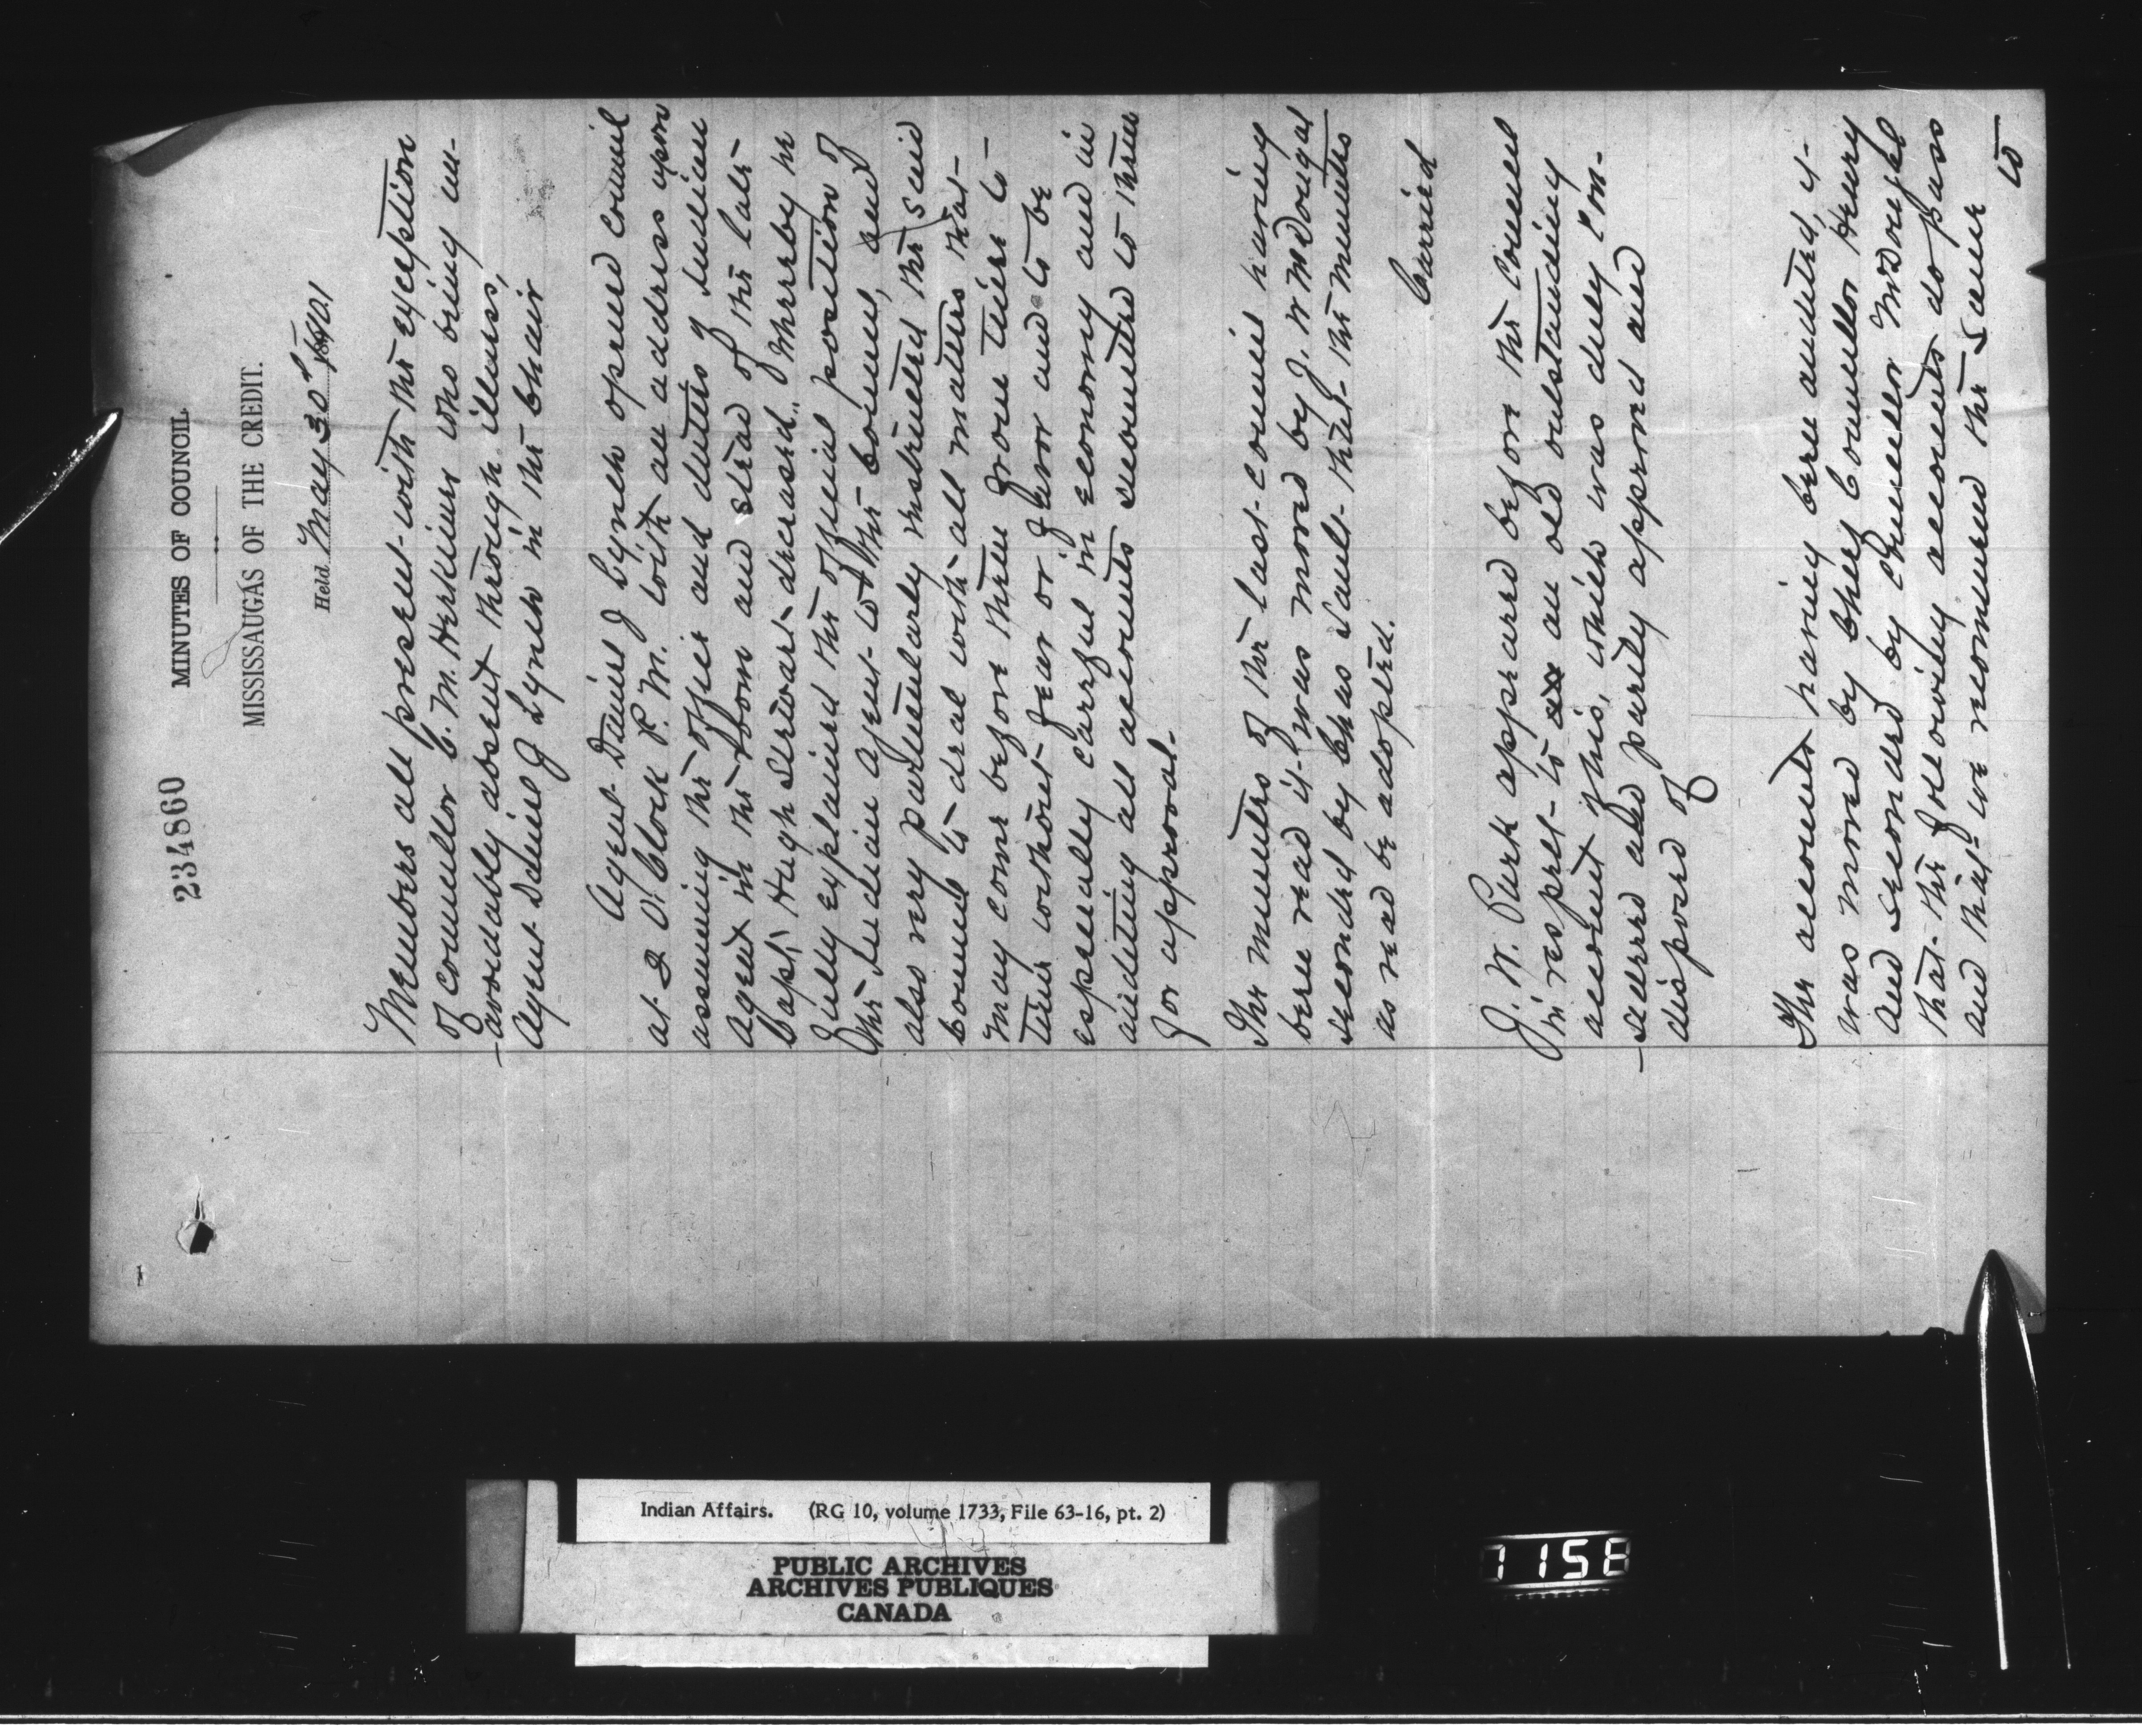 234860
MINUTES OF COUNCIL
MISSISSAUGAS OF THE CREDIT.
Held May 30th 1901
Members all present with the exception
of councillor C. M. Herkimer who being un-
-avoidably absent through illness,
Agent Daniel J Lynch in the Chair
Agent Daniel J Lynch opened Council
at 2 O'Clock P. M. with an address upon
assuming the office and duties of Indian
Agent in the room and stead of the late
Capt Hugh Stewart deceased. Whereby he
fully explained the official position of
the Indian Agent to the Council, and
also very particularly instructed the said
Council to deal with all matters that
may come before them from time to
time without fear or favor and to be
especially careful in economy and in
auditing all accounts recounted to them
for approval.
The minutes of the last council having
been read it was moved by J. W McDougal
seconded by Chas Sault that the minutes
as read be adopted.
Carried
J. W. Park appeared before the Council
in respect to an old outstanding
account of his, which was duly con-
-sidered and partly approved and
disposed of
The accounts having been audited, it
was moved by Chief Councillor Henry
and seconded by Councillor McDougal
that the following accounts do pass
and that we recommend the same
to
Indian Affairs. (RG 10, volume 1733, File 63-16, pt. 2)
PUBLIC ARCHIVES
ARCHIVES PUBLIQUES
CANADA
1158